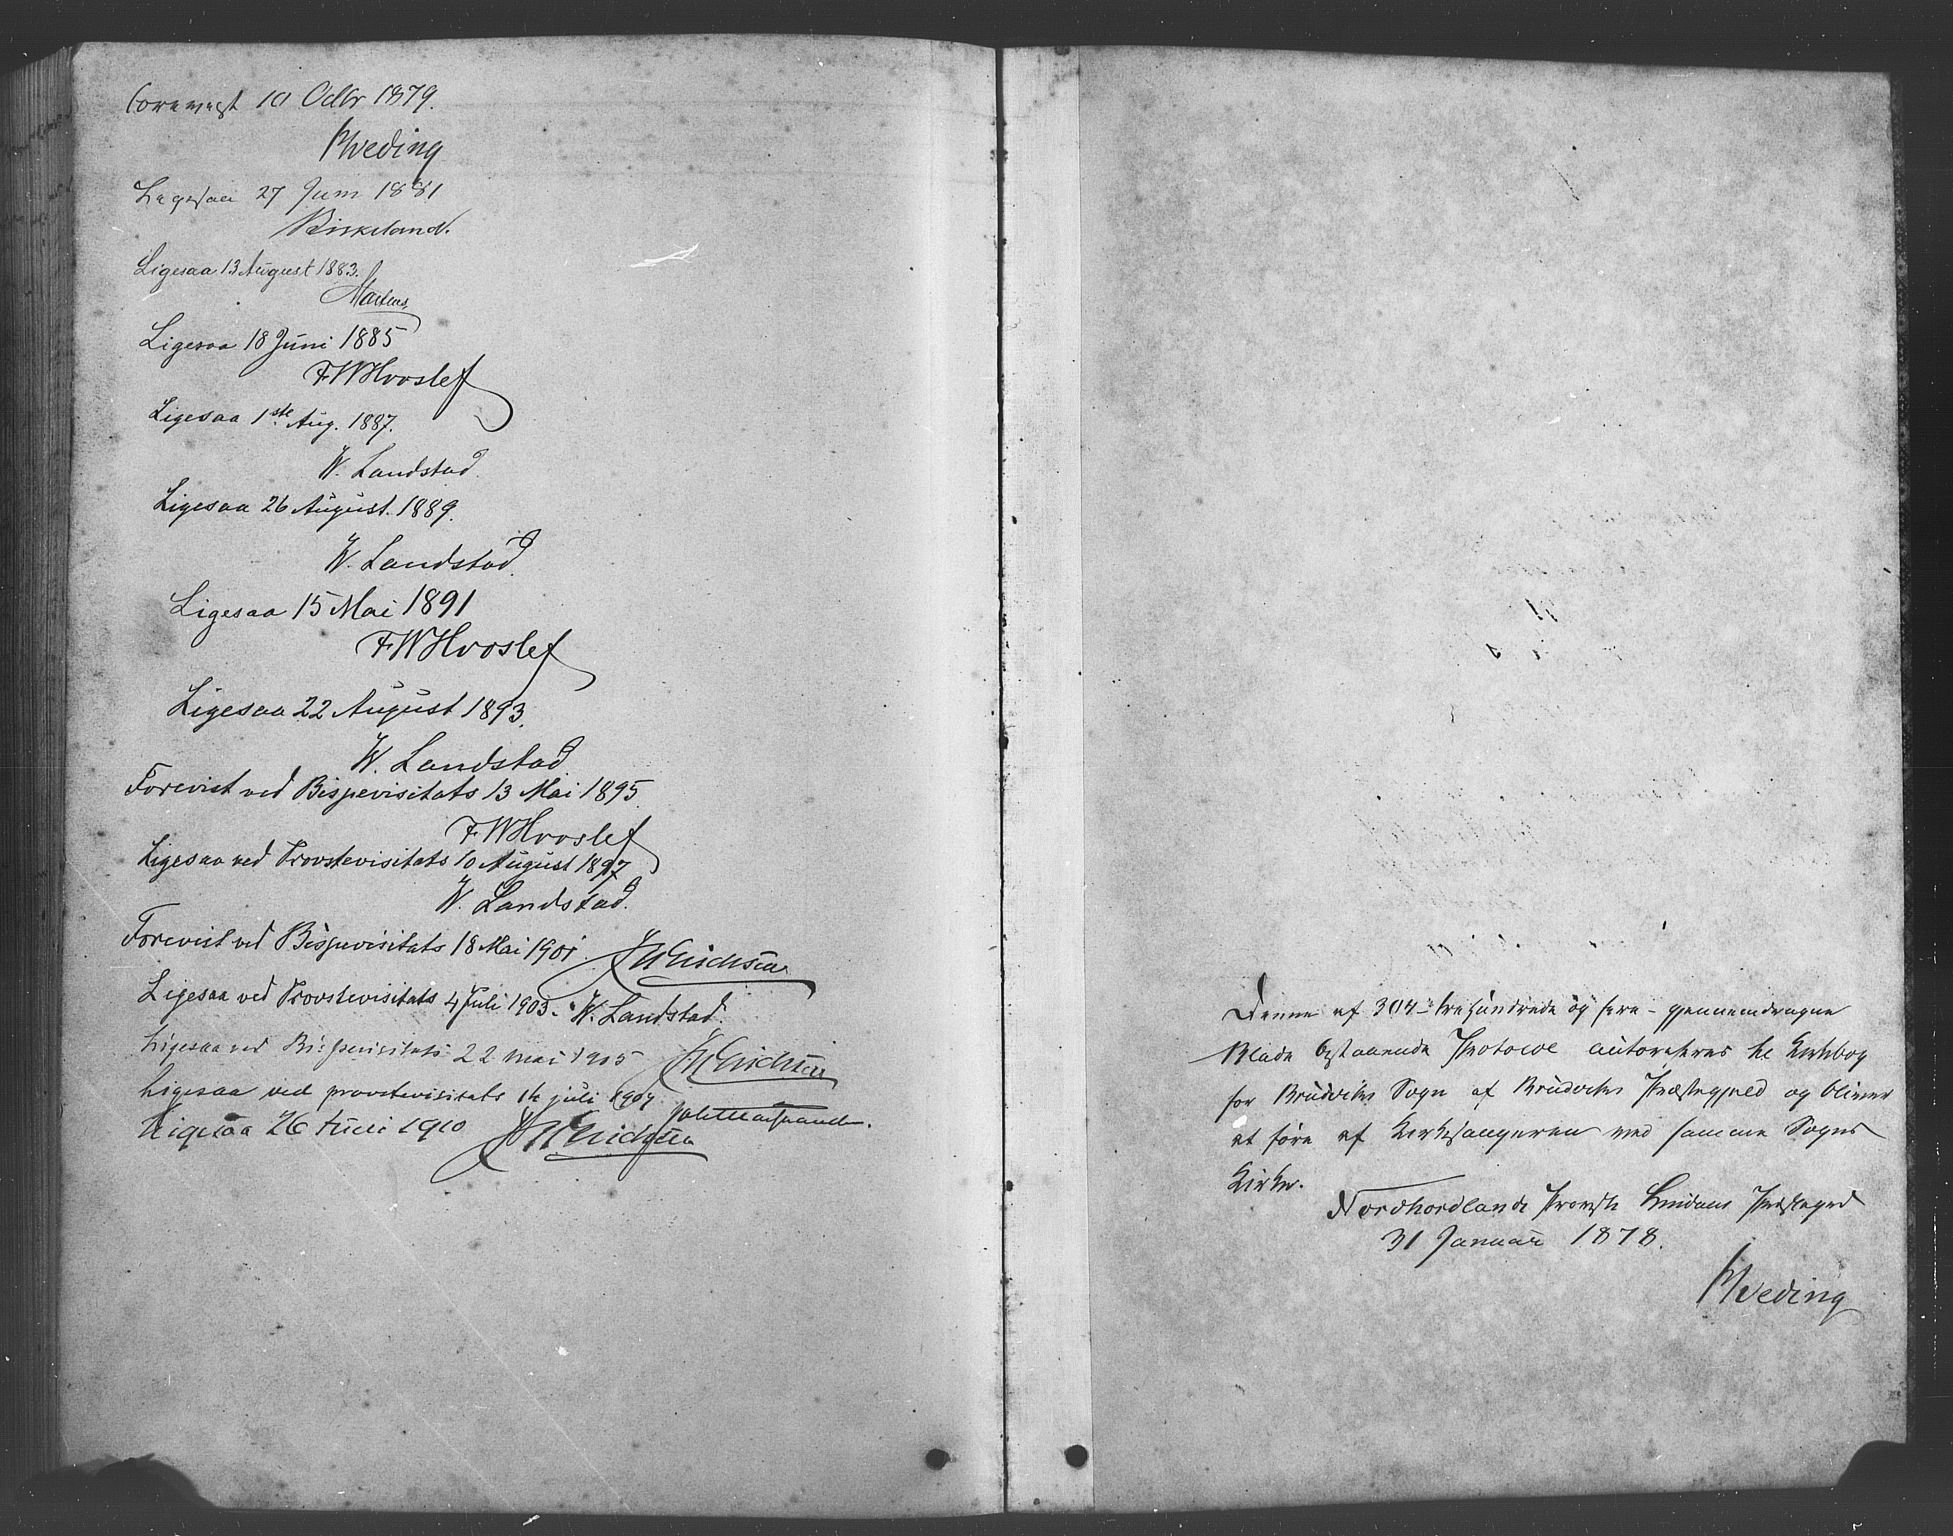 Forevist 10 Octbr 1879.
Hvoslef
Ligesaa 27 Juni 1881
Birkeland.
Ligesaa 13 August 1883.
Martens
Ligesaa 18 Juni 1885
FWHvoslef
Ligesaa 1ste Aug. 1887.
W. Landstad
Ligesaa 26 August. 1889.
W. Landstad.
Ligesaa 15 Mai 1891
FWHvoslef
Ligesaa 22 August 1893.
W. Landstad
Forevist ved Bispevisitats 13 Mai 1895.
FWHvoslef
Ligesaa ved Provstevisitats 10 August 1897
W. Landstad.
Forevist ved Bispevisitats 18 Mai 1901. JWErichsen
Ligesaa ved Provstevisitats 4 Juli 1903. W. Landstad.
Ligesaa ved Bispevisitats 22 mai 1905 JWErichsen
Ligesaa ved provstevisitats 14 juli 1907
Ligesaa 26 Juni 1910 JWErichsen
Denne af 304 – trehundrede og fire – gjennemdragne
Blade bestaaende Protocol autoriseres til Kirkebog
for Bruviks Sogn af Bruviks Præstegjeld og bliver
at føre af Kirkesangeren ved samme Sogns
Kirke.
Nordhordlands Provsti Præstegaard
31 Januar 1878.